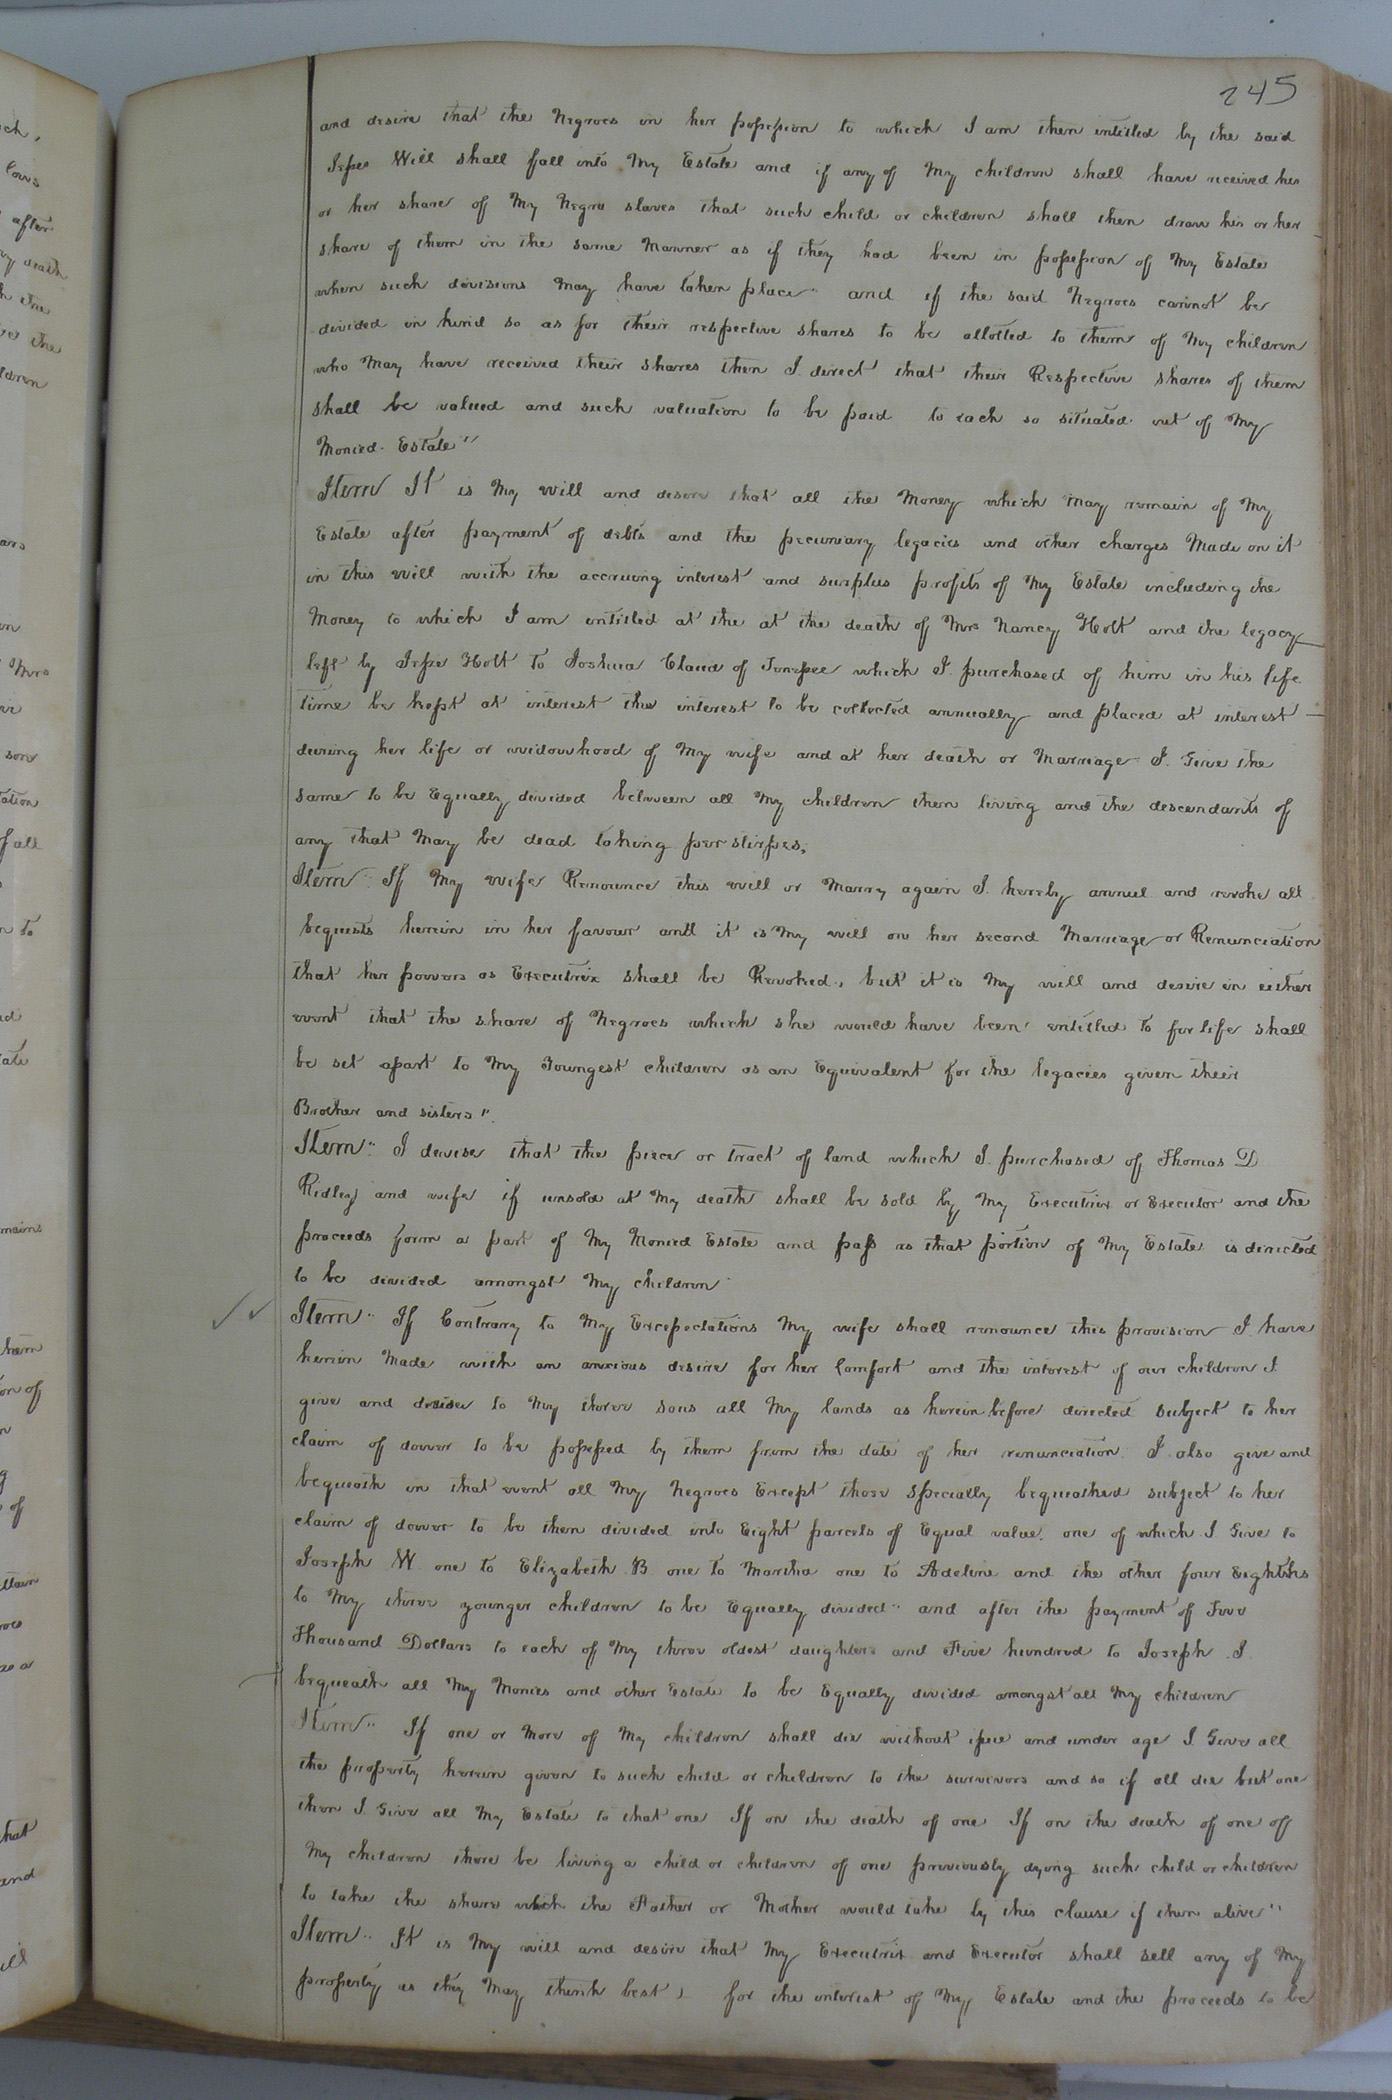 245
and desire that the Negroes in her possession to which I am then intitled by the said
Jesse Will shall fall into My Estate and if any of My children shall have received his
or her share of My Negro slaves that such child or children shall then draw his or her
share of them in the same Manner as if they had been in possession of My Estate
when such divisions May have taken place" and if the said Negroes cannot be
divided in kind so as for their respective shares to be allotted to them of My children
who May have received their shares then I direct that their Respective shares of them
shall be valued and such valuation to be paid to each so situated out of My
Monied Estate"
Item It is My will and desire that all the Money which May remain of My
Estate after payment of debts and the pecuniary legacies and other charges Made on it
in this will with the accruing interest and surplus profits of My Estate including the
Money to which I am intitled at the at the death of Mrs Nancy Holt and the legacy
left by Jesse Holt to Joshua Claud of Tenessee which I purchased of him in his life
time be kept at interest the interest to be collected annually and placed at interest
during her life or widowhood of My wife and at her death or Marriage I Give the
same to be Equally divided between all My children then living and the descendants of
any that May be dead taking per stirpes,
Item" If My wife Renounce this will or Marry again I hereby annul and revoke all
bequests herein in her favour and it is My will on her second Marriage or Renunciation
that her powers as Executrix shall be Revoked, but it is My will and desire in either
event that the share of Negroes which she would have been entitled to for life shall
be set apart to My Youngest children as an Equivalent for the legacies given their
Brother and sisters".
Item" I devise that the piece or tract of land which I purchased of Thomas D
Ridley and wife if unsold at My death shall be sold by My Executrix or Executor and the
proceeds form a part of My Monied Estate and pass as that portion of My Estate is directed
to be divided amongst My children
Item" If Contrary to My Excepectations My wife shall renounce this provision I have
herein Made with an anxious desire for her Comfort and the interest of our children I
give and devise to My three sons all My lands as herein before directed subject to her
claim of dower to be possessed by them from the date of her renunciation. I also give and
bequeath in that event all My Negroes Except those specially bequeathed subject to her
claim of dower to be then divided into Eight parcels of Equal value. one of which I Give to
Joseph W. one to Elizabeth B one to Martha one to Adeline and the other four Eighths
to My three younger children to be Equally divided" and after the payment of Five
Thousand Dollars to each of My three oldest daughters and Five hundred to Joseph I
bequeath all My Monies and other Estate to be Equally divided amongst all My children
Item" If one or More of My children shall die without issue and under age I Give all
the property herein given to such child or children to the survivors and so if all die but one
then I Give all My Estate to that one If on the death of one If on the death of one off
My children there be living a child or children of one previously dying such child or children
to take the share which the Father or Mother would take by this clause if then alive"
Item" It is My will and desire that My Executrix and Executor shall sell any of My
property as they May think best, for the interest of My Estate and the proceeds to be